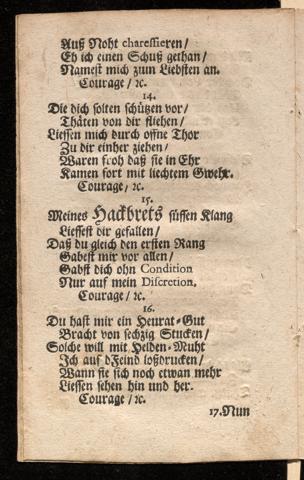 Auß Noht charessieren/
Eh ich einen Schuß gethan/
Namest mich zum Liebsten an.
Courage/ ꝛc.
14.
Die dich solten schützen vor/
Thäten von dir fliehen/
Liessen mich durch offne Thor
Zu dir einher ziehen/
Waren froh daß sie in Ehr
Kamen fort mit liechtem Gwehr.
Courage/ ꝛc.
15.
Meines Hackbrets süssen Klang
Liessest dir gefallen/
Daß du gleich den ersten Rang
Gabest mir vor allen/
Gabst dich ohn Condition
Nur auf mein Discretion.
Courage/ ꝛc.
16.
Du hast mir ein Heurat-Gut
Bracht von sechzig Stucken/
Solche will mit Helden-Muht
Ich auf dFeind loßdrucken/
Wann sie sich noch etwan mehr
Liessen sehen hin und her.
Courage/ ꝛc.
17. Nun